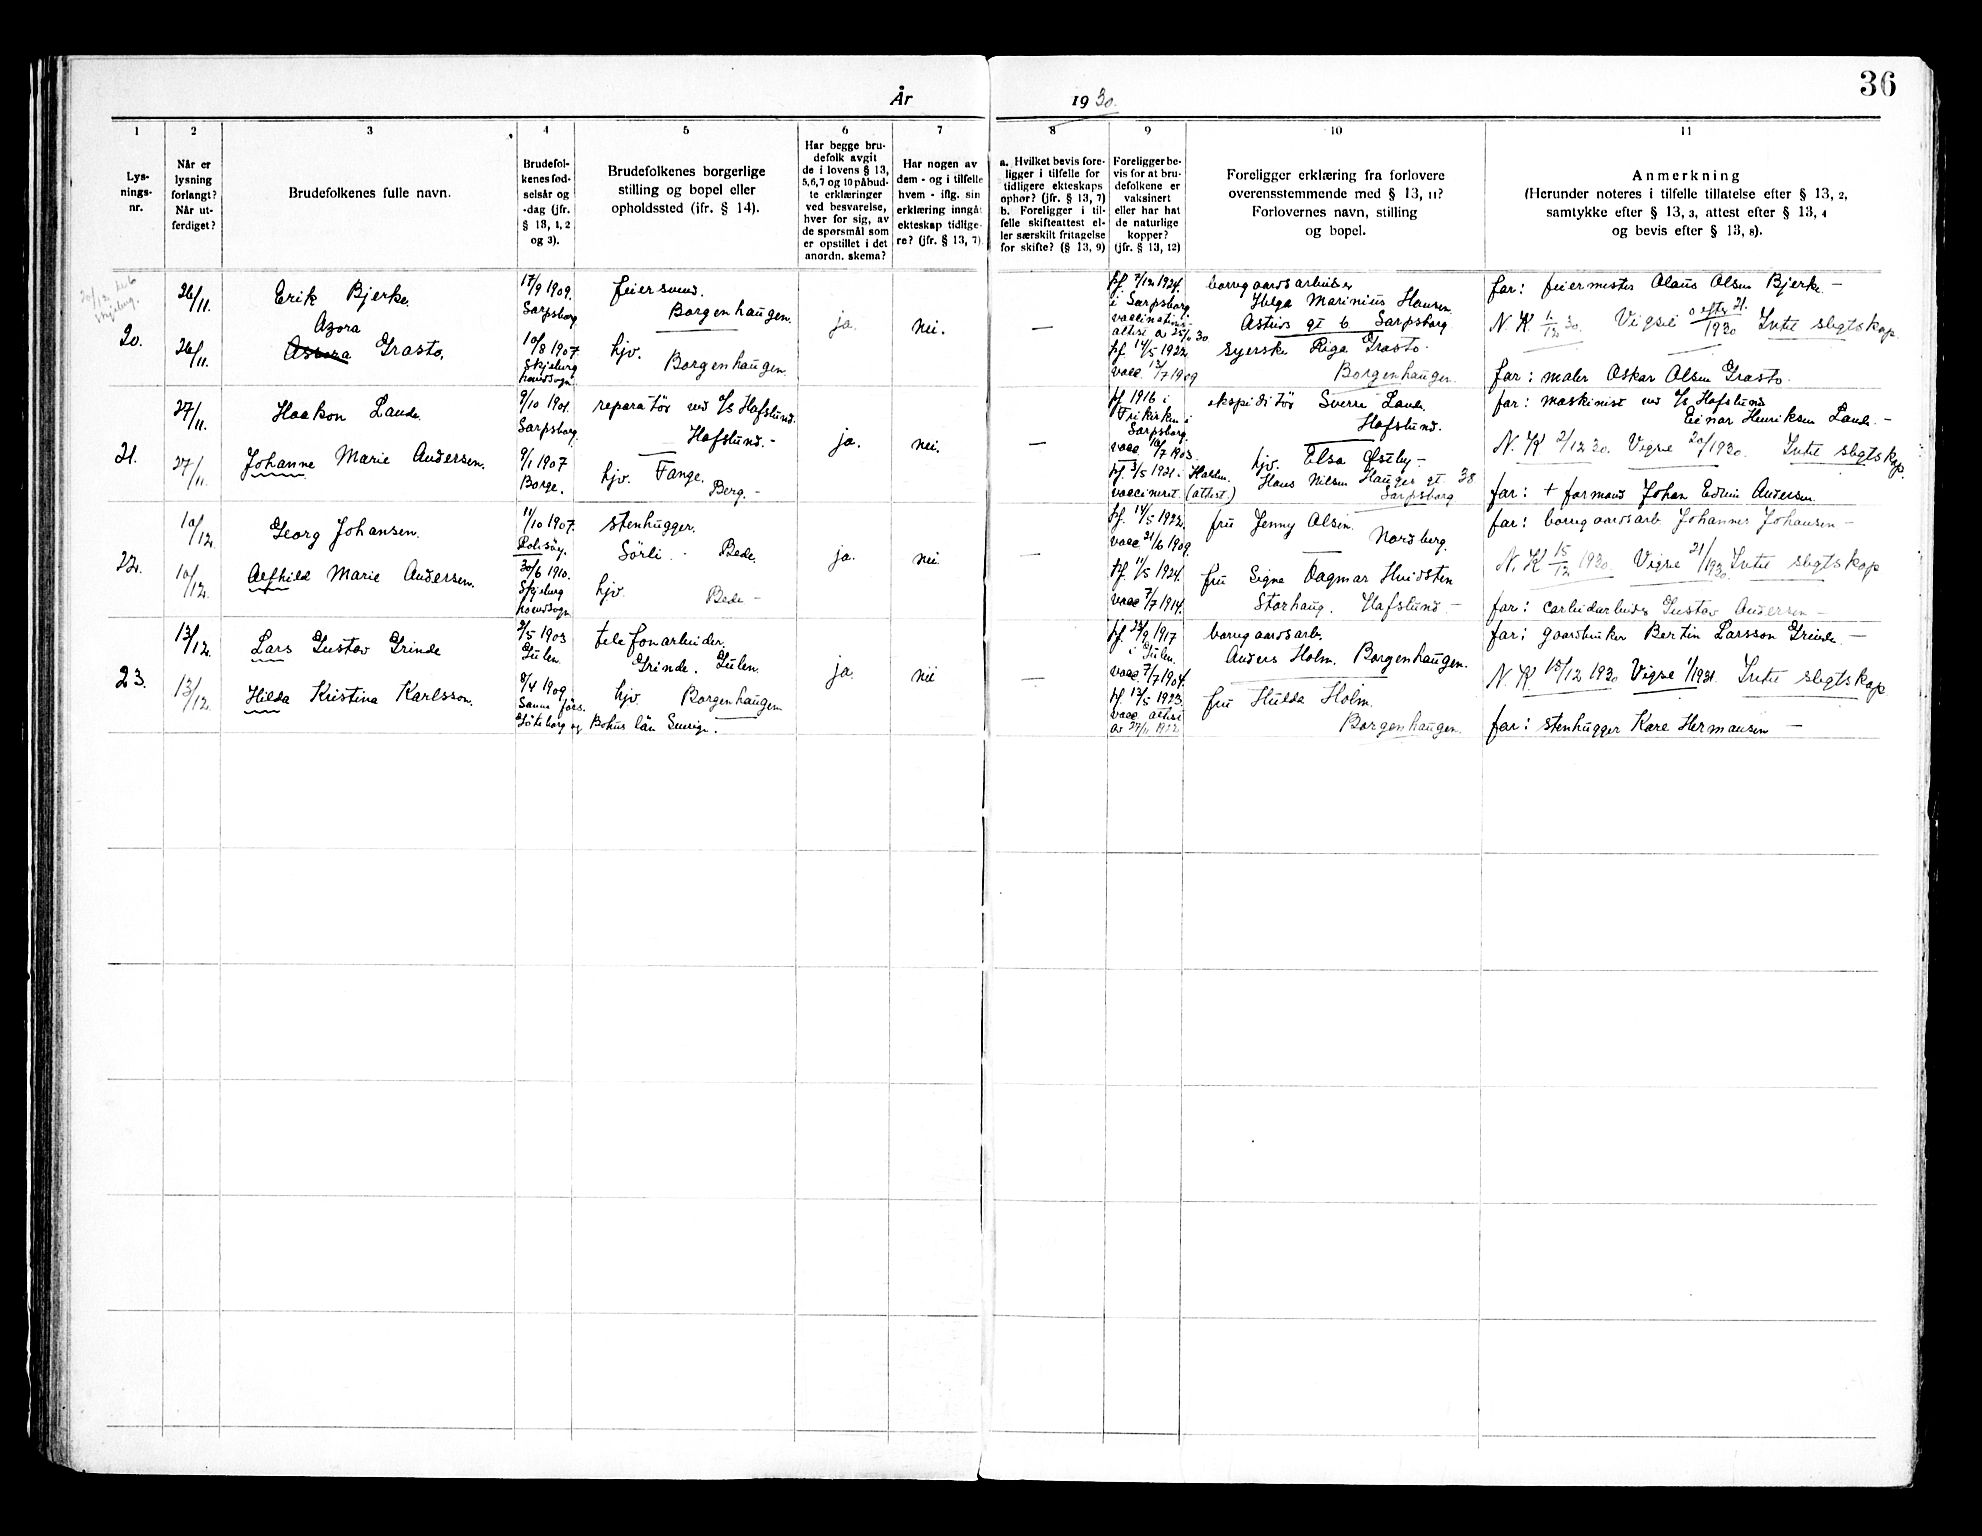 36
År 1930.
1 2 3 4 5 6 7 8 9 10 11
Lys-
nings-
nr.
Når er
lysning
forlangt?
Når ut-
ferdiget?
Brudefolkenes fulle navn.
Brudefol-
kenes fød-
selsår og
-dag (jfr.
§ 13, 1, 2
og 3).
Brudefolkenes borgerlige
stilling og bopel eller
opholdssted (ifr. § 14).
Har begge bru-
defolk avgit
de i lovens § 13,
5,6,7 og 10 påbud-
te erklæringer
ved besvarelse,
hver for sig, av
de spørsmål som
er opstillet i det
anordn. skema?
Har nogen av
dem - og i tilfelle
hvem - iflg. sin
erklæring inngåt
ekteskap tidlige-
re? (jfr. § 13, 7)
a. Hvilket bevis fore-
ligger i tilfelle for
tidligere ekteskaps
ophør? (jfr. § 13, 7)
b. Foreligger i til-
felle skifteattest el-
ler særskilt fritagelse
for skifte? (§ 13, 9)
Foreligger be-
vis for at bru-
defolkene er
vaksinert
eller har hat
de naturlige
kopper?
(jfr. § 13, 12)
Foreligger erklæring fra forlovere
overensstemmende med § 13, 11?
Forlovernes navn, stilling
og bopel.
Anmerkning
(Herunder noteres i tilfelle tillatelse efter § 13, 2,
samtykke efter § 13, 3, attest efter § 13, 4
og bevis efter § 13, 8).
20.
26/11.
Erik Bjerke.
17/9 1909.
Sarpsborg
feiersvend.
Borgenhaugen.
ja.
nei.
—
kf. 7/12 1924.
i Sarpsborg
vaccinations-
attest av 25/11 30
borgaardsarbeider
Helga Marinius Hansen.
Astrids gt 6 Sarpsborg
far: feiermester Olaus Olsen Bjerke. —
N.K. 1/12 30. Vigsel efter 21. 1930 Intet slegtskap.
26/11.
Azora
Assora Grasto,
10/8 1907.
Skjeberg
hovedsogn
hjv.
Borgenhaugen.
kf. 14/5 1922
vacc. 13/7 1909
syerske Riga Grasto.
Borgenhaugen.
far: maler Oskar Olsen Grasto.
21.
27/11.
Haakon Lande
9/10 1901.
Sarpsborg.
reparatør ved A/S Hafslund.
Hafslund. -
ja.
nei.
—
kf 1916 i
Frikirken i
Sarpsborg
vacc 10/7 1903.
ekspeditør Sverre Lande.
Hafslund.
far: maskinist ved A/S Hafslund
Einar Henriksen Lande. —
N.K 2/12 30. Vigsel 20/1930. Intet slegtskap.
27/11.
Johanne Marie Andersen.
9/1 1907
Borge.
hjv. Tange.
Berg. -
kf. 3/5 1921 i Halden.
vaccineret. (attest)
hjv. Elsa Østby —
Hans Nilsen Hauges gt 38
Sarpsborg
far: + formand Johan Edvin Andersen.
22.
10/12
Georg Johansen.
11/10 1907.
Rolvsøy.
stenhugger.
Sörli. - Bede.
ja.
nei.
—
kf. 14/5 1922.
vacc 21/6 1909.
fru Jenny Olsen.
Nordberg.
far: borgaardsarb Johannes Johansen —
N.K 15/12 1930. Vigsel 21/1930. Intet slegtskap
10/12.
Alfhild Marie Andersen.
30/6 1910.
Skjeberg
hovedsogn
hjv.
Bede —
kf. 11/5 1924.
vacc 7/7 1914.
fru Signe Dagmar Hvidsten
Storhaug. Hafslund. —
far: carbidarbeider Gustav Andersen —
23.
13/12.
Lars Gustav Grinde
2/5 1903
Gulen.
telefonarbeider.
Grinde. Gulen.
ja.
nei
—
kf. 23/9 1917
i Gulen.
vacc 7/7 1904.
borgaardsarb.
Anders Holm. Borgenhaugen.
far: gaardbruker Bertin Larsson Grinde —
N.K. 15/12 1930 Vigsel 1/1931. Intet slegtskap
13/12.
Hilda Kristina Karlsson.
8/4 1909.
Sanne förs.
Göteborg og Bohus län Sverige.
hjv. Borgenhaugen
kf. 13/5 1923.
vacc attest
av 27/11 1912
fru Hulda Holm.
Borgenhaugen.
far: stenhugger Kare Hermansen —